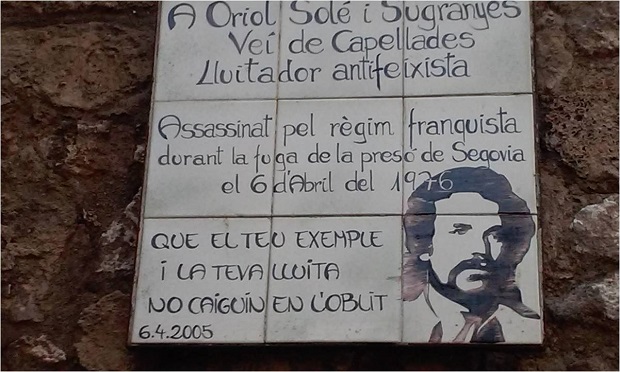 A Oriol Solé i Sugranyes
Veí de Capellades
Lluitador antifeixista
Assassinat pel règim franquista
durant la fuga de la presó de Segovia
el 6 d'Abril del 1976
QUE EL TEU EXEMPLE
i LA TEVA LLUITA
NO CAIGUIN EN L'OBLIT
6.4.2005